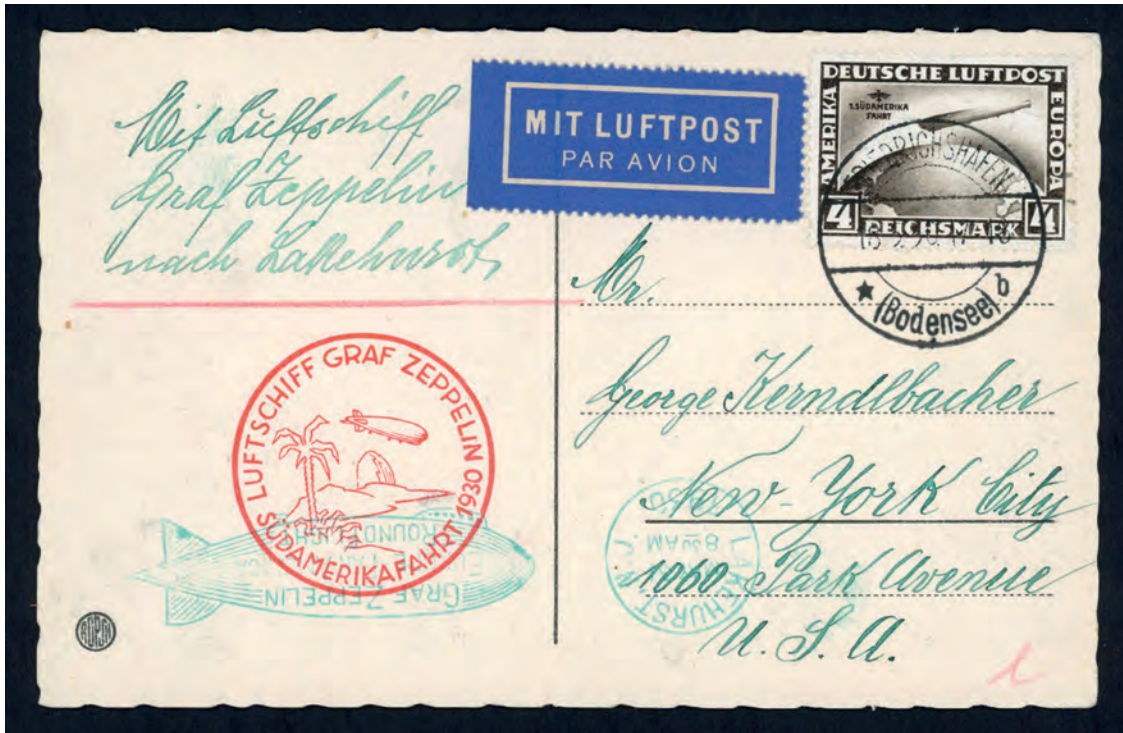 Mit Luftschiff
Graf Zeppelin
nach Lakehurst
MIT LUFTPOST
PAR AVION
DEUTSCHE LUFTPOST
AMERIKA
EUROPA
1. SÜDAMERIKA
FAHRT
4 REICHSMARK 4
FRIEDRICHSHAFEN
(Bodensee) b
Mr.
George Kerndlbacher
New-York City
1060 Park Avenue
U. S. A.
LUFTSCHIFF GRAF ZEPPELIN 1930
SÜDAMERIKAFAHRT
GRAF ZEPPELIN
LAKEHURST
8 30 AM